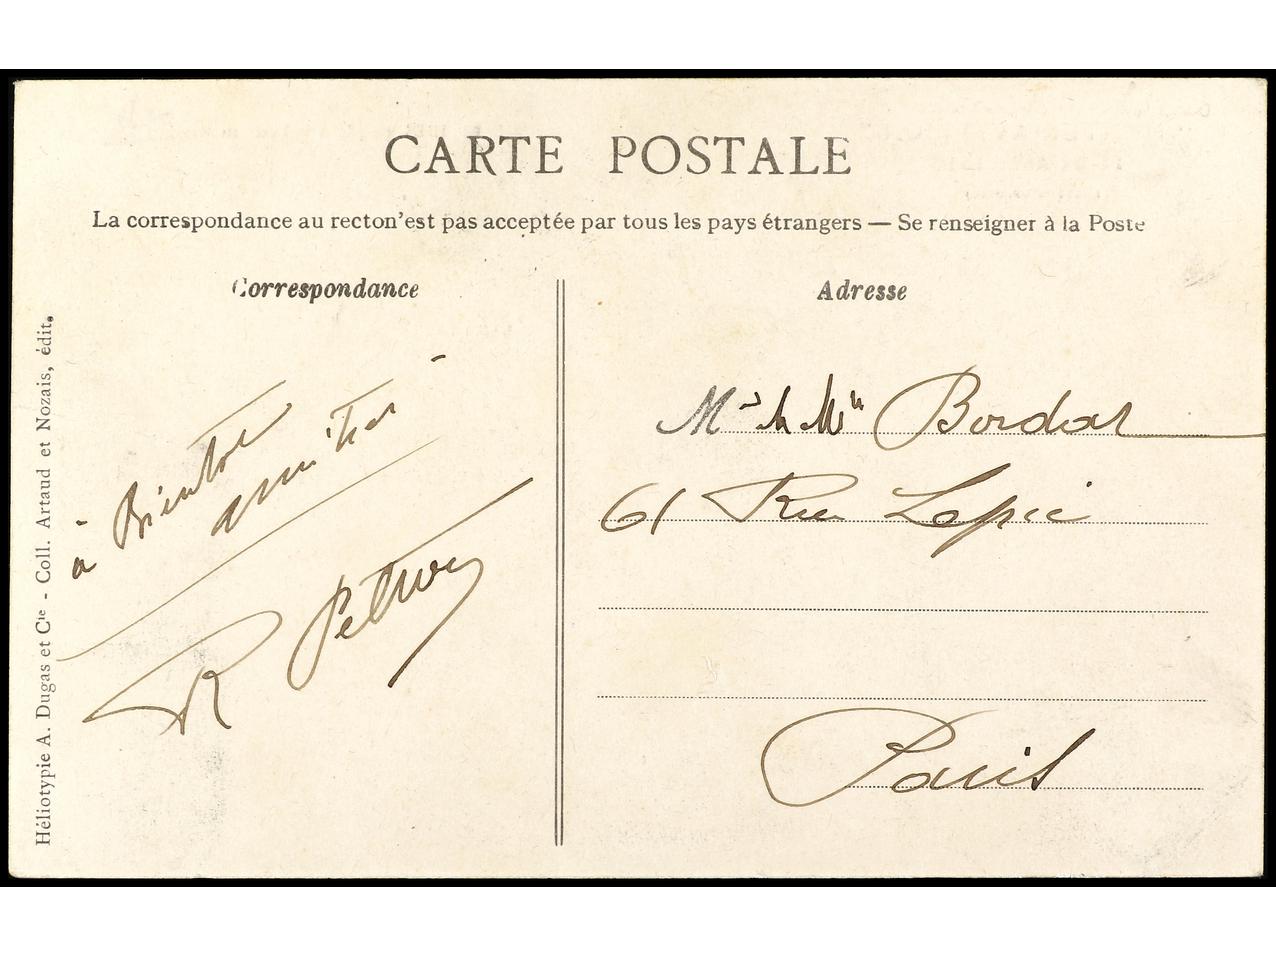 CARTE POSTALE
La correspondance au recton'est pas acceptée par tous les pays étrangers — Se renseigner à la Poste
Correspondance
Adresse
Héliotypie A. Dugas et Cie - Coll. Artaud et Nozais, édit.
à Bientôt
amitiés
R
Bordas
61 Rue Lepic
Paris